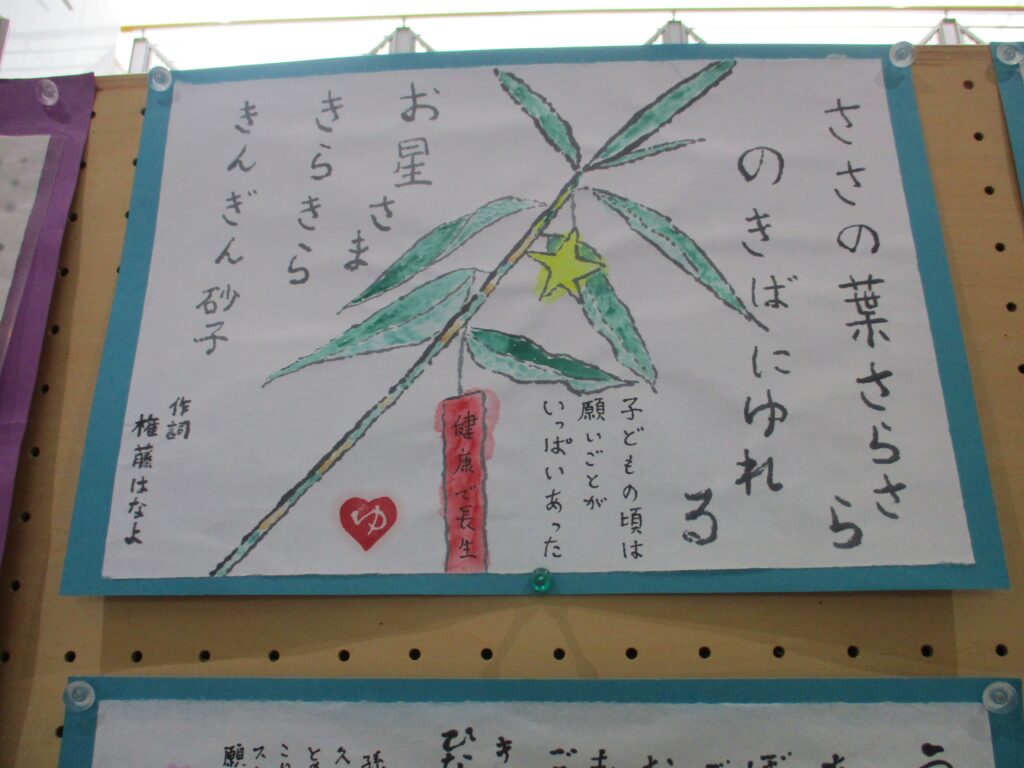 ささの葉さらさら
のきばにゆれる
お星さま
きらきら
きんぎん砂子
作詞
権藤はなよ
子どもの頃は
願いごとが
いっぱいあった
健康で長生
ゆ